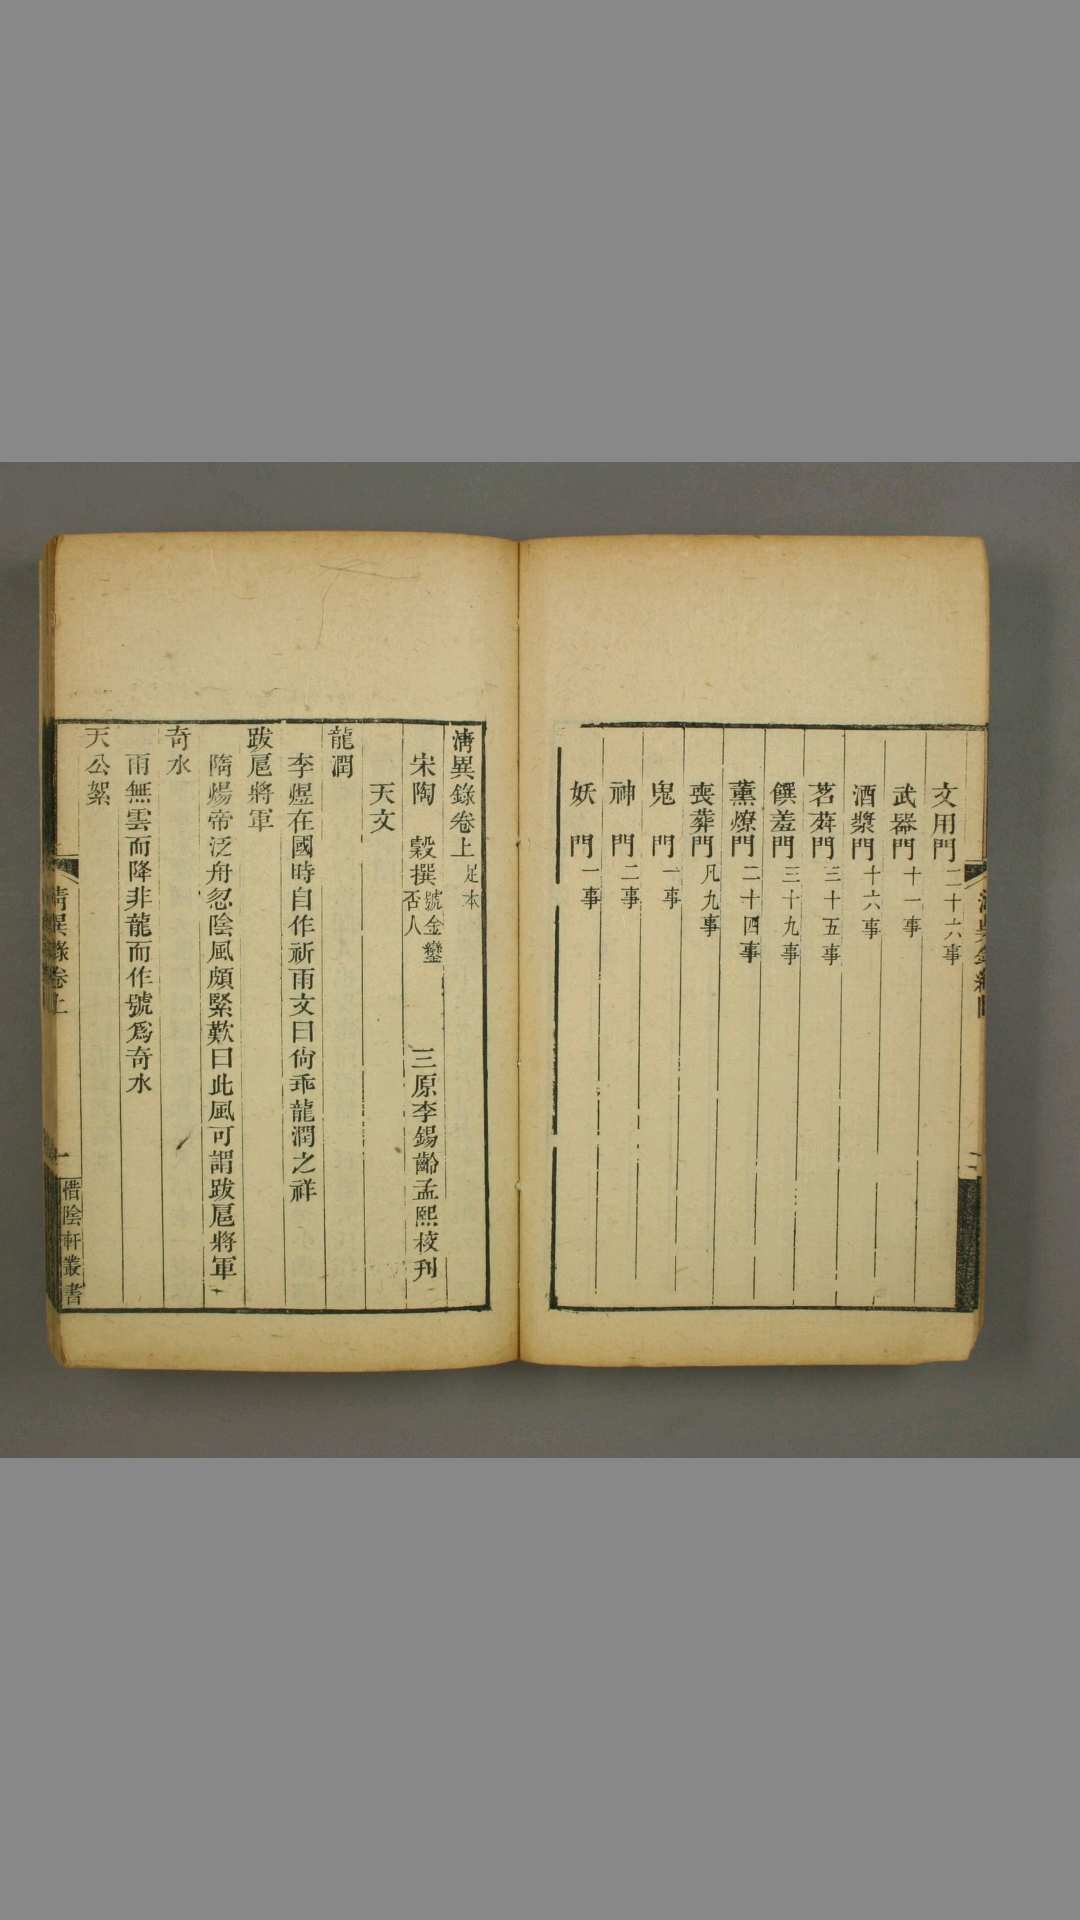 文用門二十六事
武器門十一事
酒漿門十六事
茗荈門三十五事
饌羞門三十九事
薰燎門二十四事
喪葬門凡九事
鬼門一事
神門二事
妖門一事
清異錄卷上足本
宋陶穀撰號金鑾否人 三原李錫齡孟熙校刊
天文
龍潤
李煜在國時自作祈雨文曰尙乖龍潤之祥
跋扈將軍
隋煬帝泛舟忽陰風頗緊歎曰此風可謂跋扈將軍
奇水
雨無雲而降非龍而作號爲奇水
天公絮
清異錄卷上
一
惜陰軒叢書